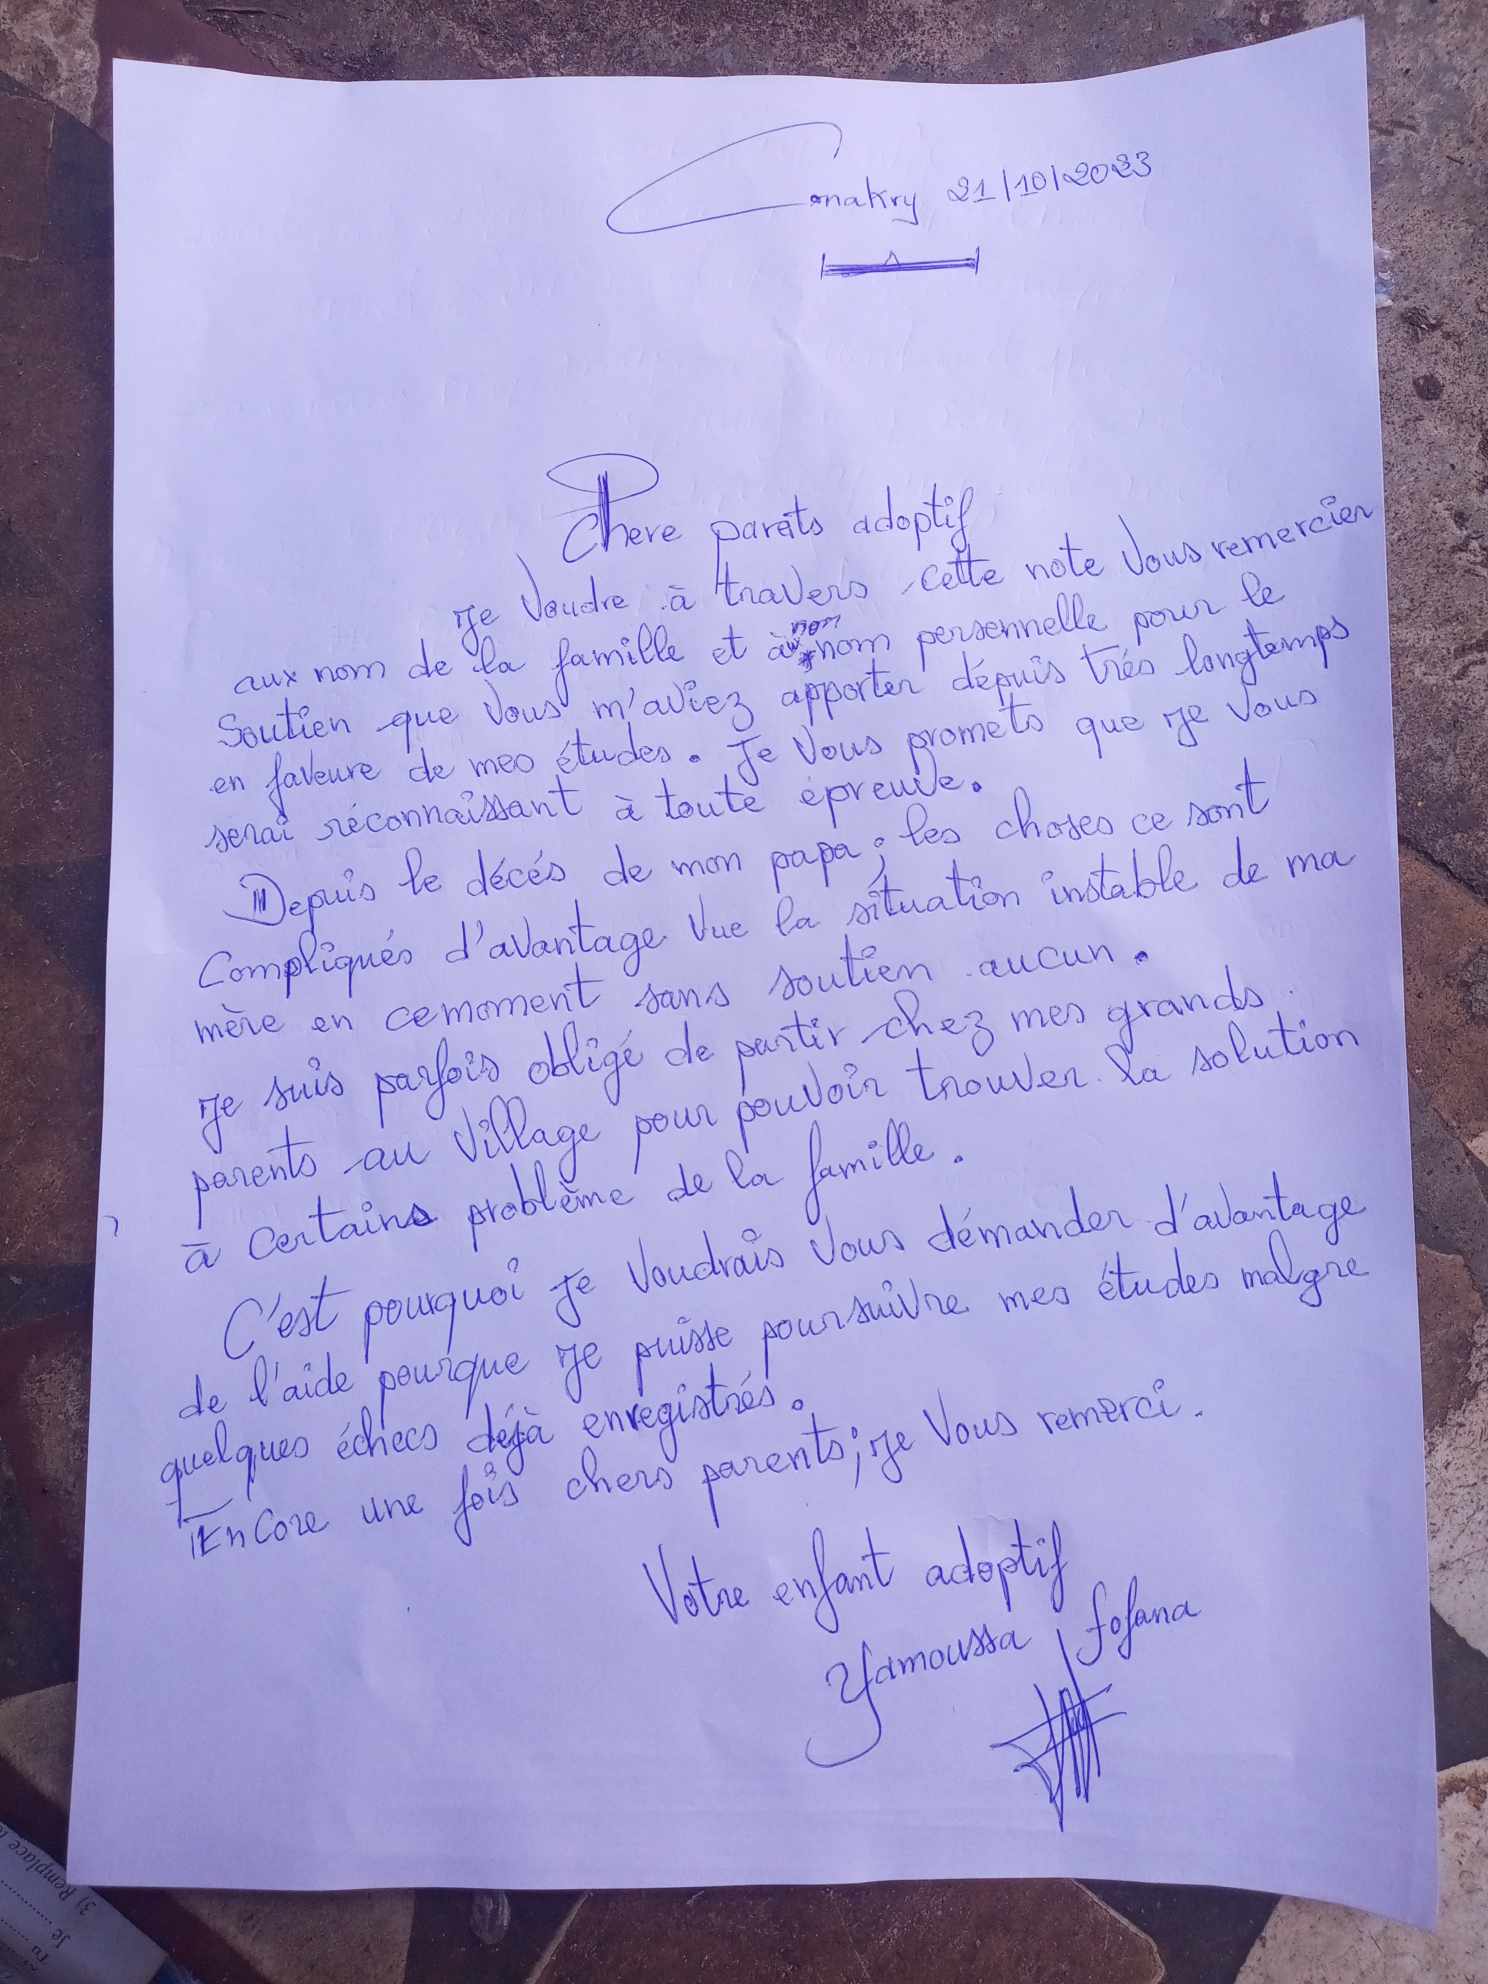 Conakry 21/10/2023
Chere parets adoptif
Je voudre à travers cette note vous remercier
aux nom de la famille et à nom personnelle pour le
soutien que vous m'aviez apporter dépuis trés longtemps
en faveure de mes études. Je vous promets que je vous
serai réconnaissant à toute épreuve.
Depuis le décés de mon papa; les choses ce sont
compliqués d'avantage vue la situation instable de ma
mère en cemoment sans soutien aucun.
Je suis parfois obligé de partir chez mes grands
parents au village pour pouvoir trouver la solution
à certains problème de la famille.
C'est pourquoi je voudrais vous démander d'avantage
de l'aide pourque je puisse poursuivre mes études malgre
quelques échecs déjà enregistrés.
Encore une fois chers parents; je vous remerci.
Votre enfant adoptif
Yamoussa fofana
3) Remplace
Je
Tu